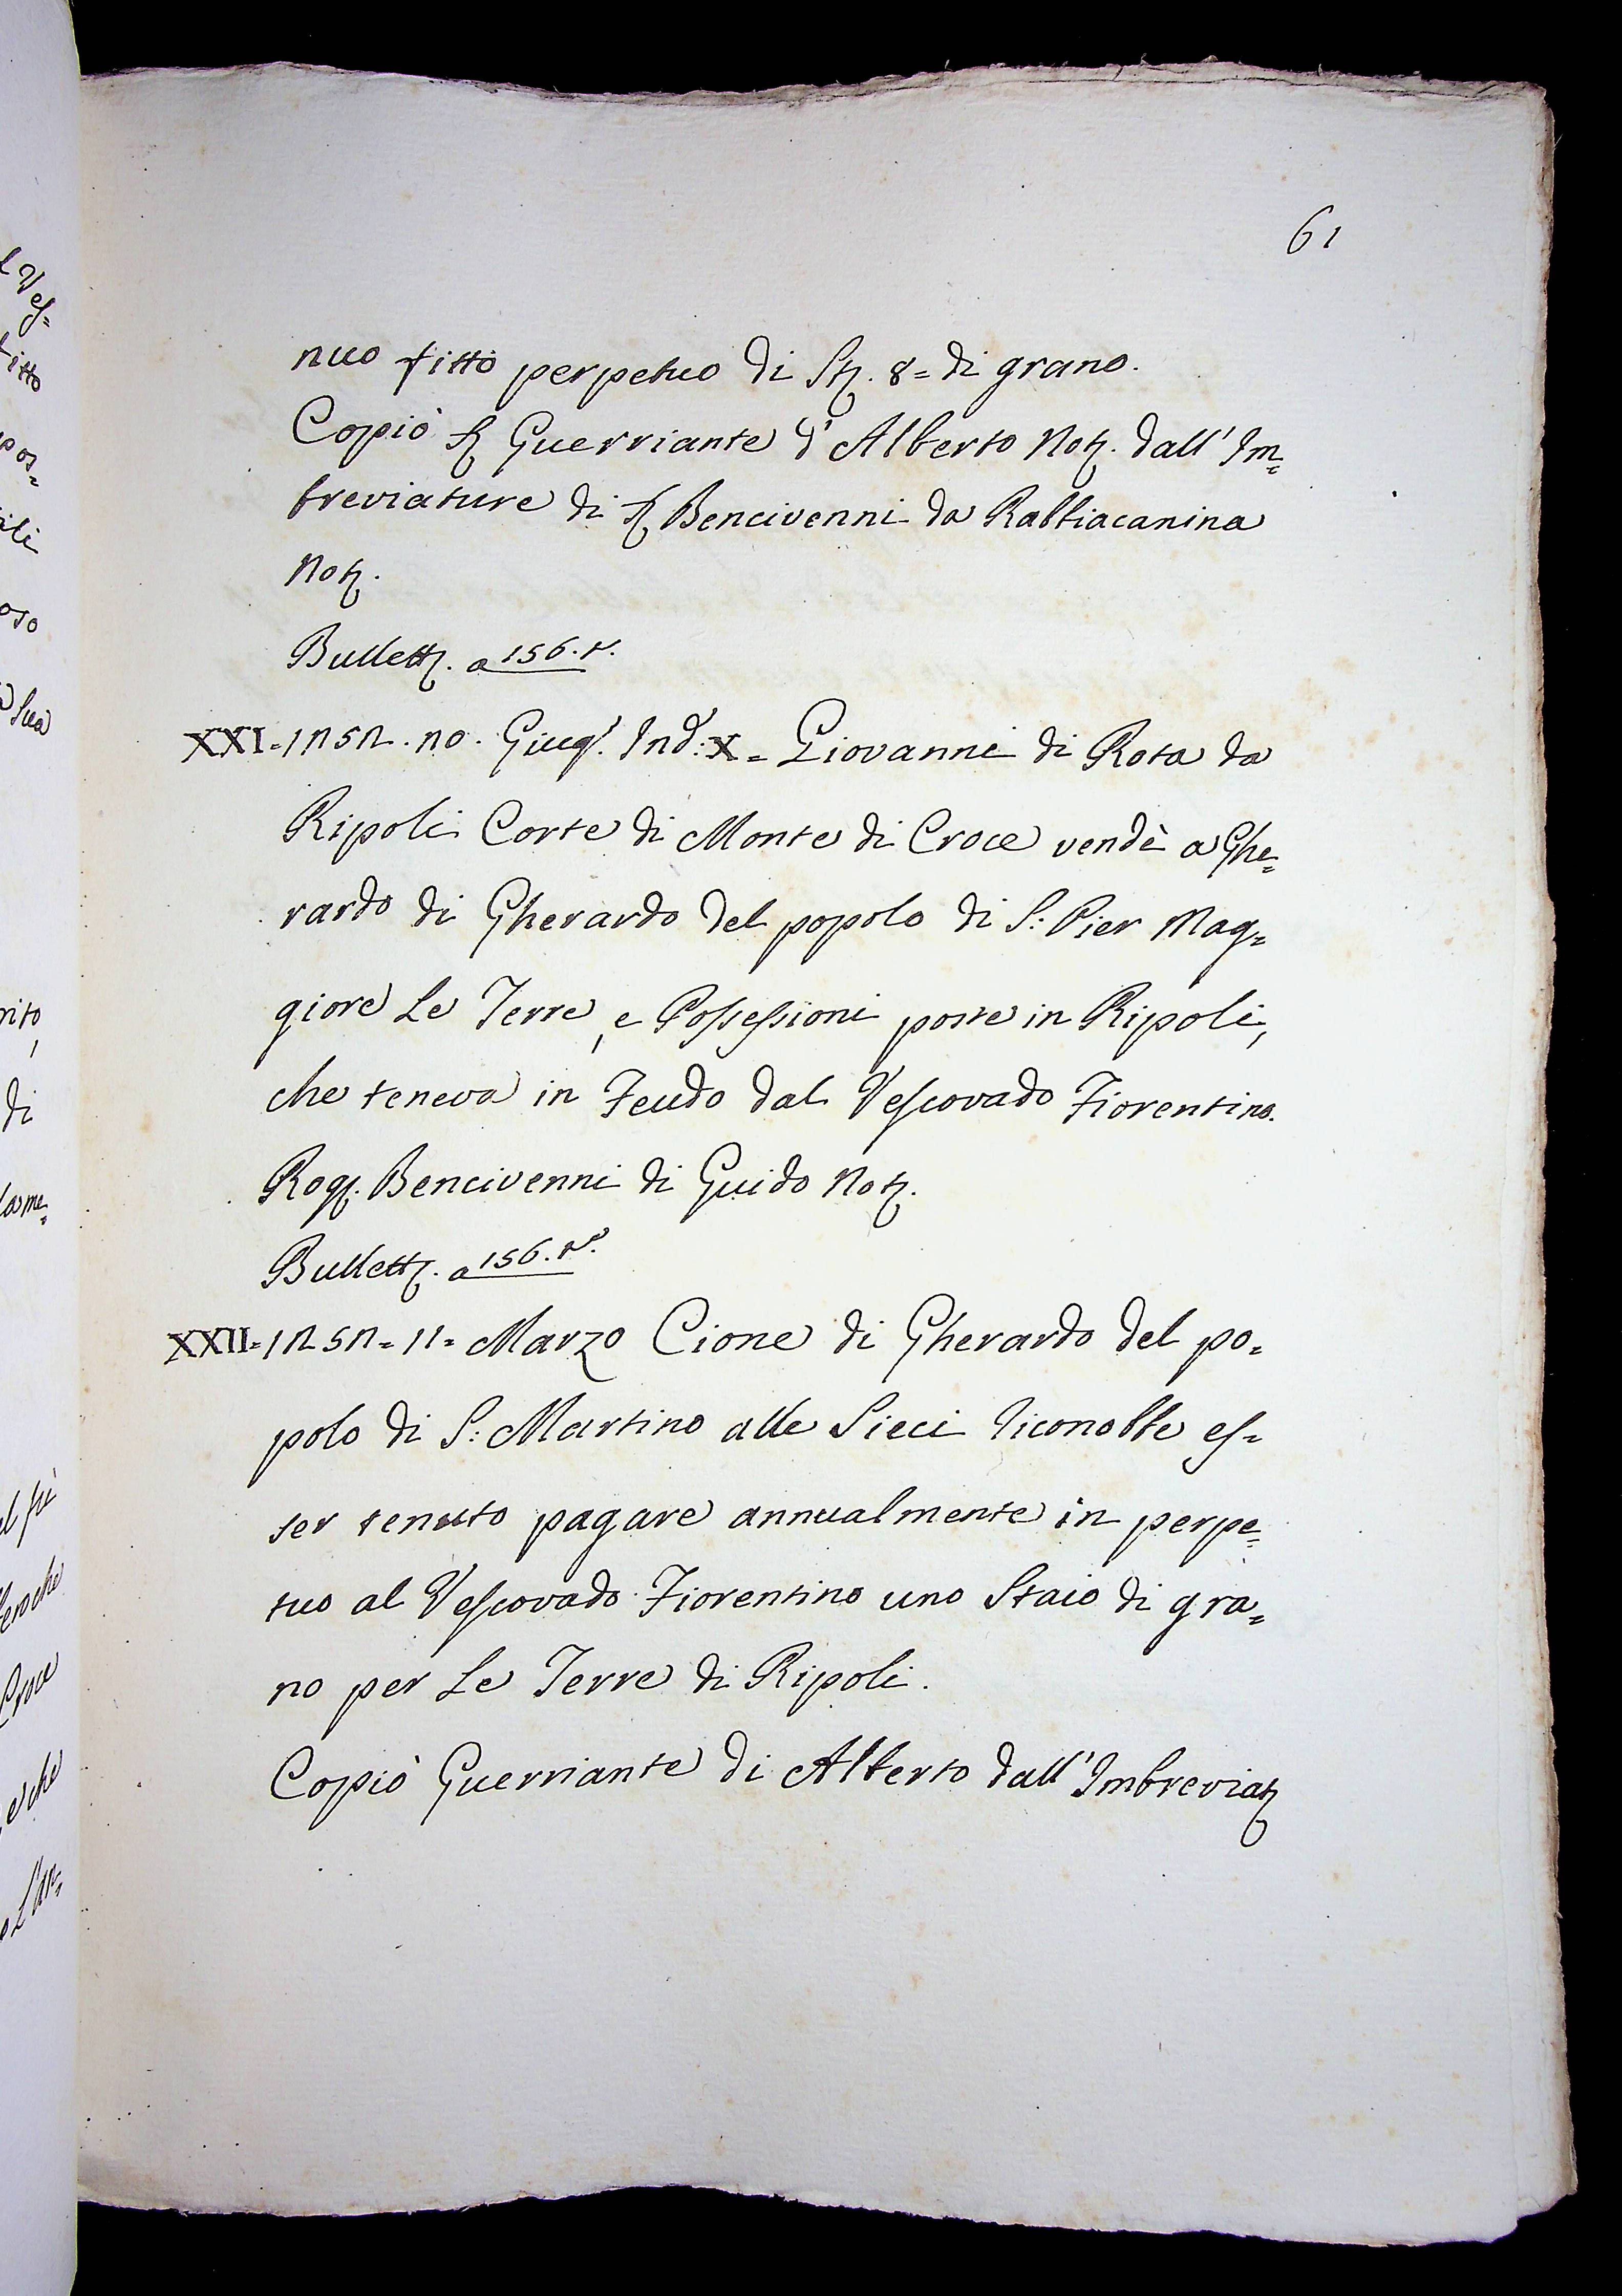 61
nuo fitto perpetuo di St. 8= di grano.
Copiò S. Guerriante d'Alberto Not. dall'Im=
breviature di S. Bencivenni da Rabbiacanina
Not.
Bullett. a 156.t.
XXI=1252. 20. Giug.º Ind.: X= Giovanni di Rota da
Ripoli Corte di Monte di Croce vendè a Ghe=
rardo di Gherardo del popolo di S: Pier Mag=
giore Le Terre, e Possessioni poste in Ripoli,
che teneva in Feudo dal Vescovado Fiorentino.
Rog. Bencivenni di Guido Not.
Bullett. a 156.t.
XXII=1252=11= Marzo Cione di Gherardo del po=
polo di S: Martino alle Sieci riconobbe es=
ser tenuto pagare annualmente in perpe=
tuo al Vescovado Fiorentino uno Staio di gra=
no per Le Terre di Ripoli.
Copiò Guerriante di Alberto dall'Imbreviat.